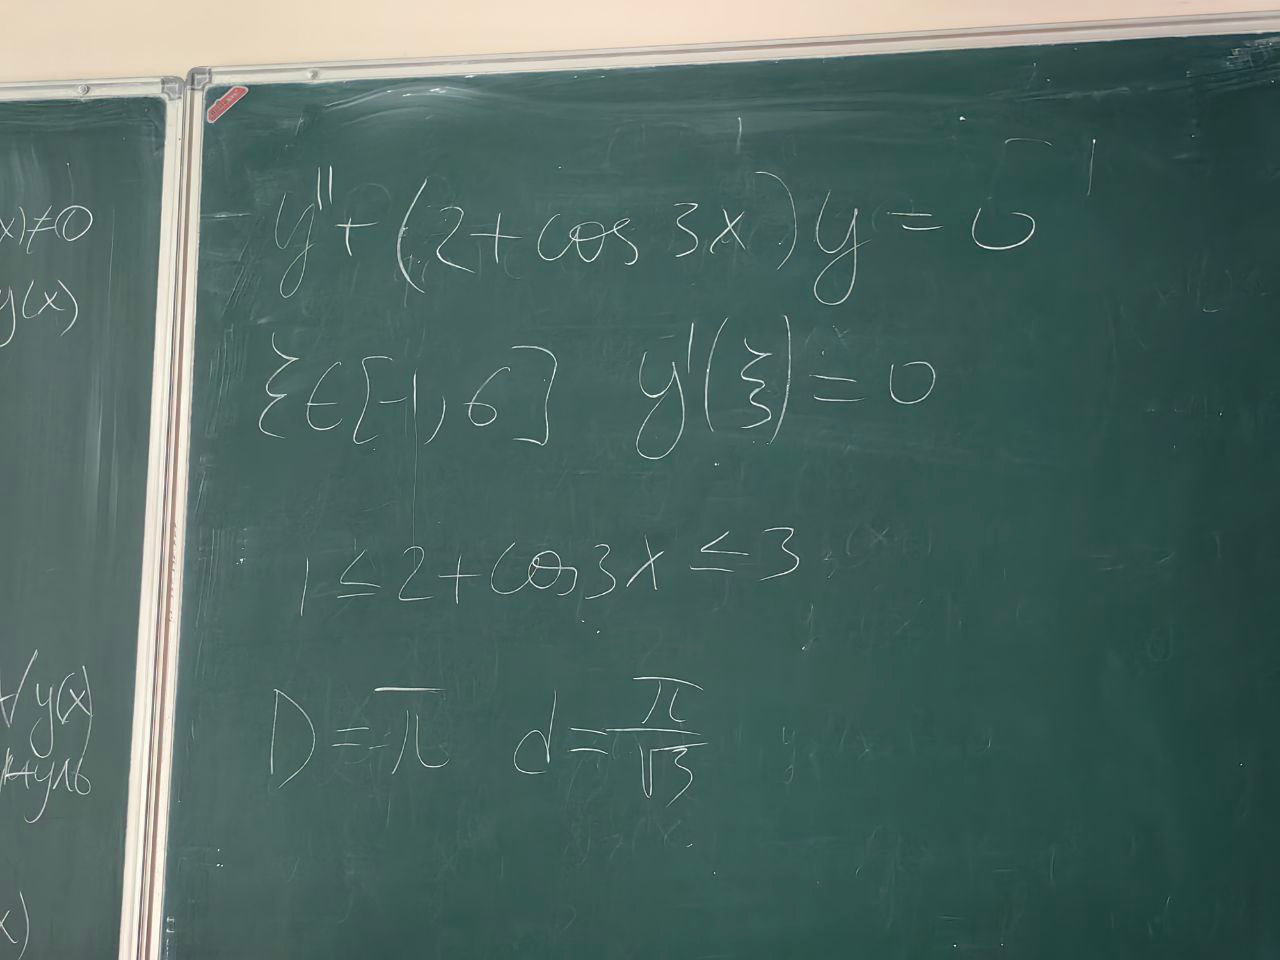 x)≠0
y(x)
∀y(x)
нуль
x)
y'' + (2 + cos 3x) y = 0
ξ ∈ [-1, 6] y'(ξ) = 0
1 ≤ 2 + cos 3x ≤ 3
D = π d = π/√3